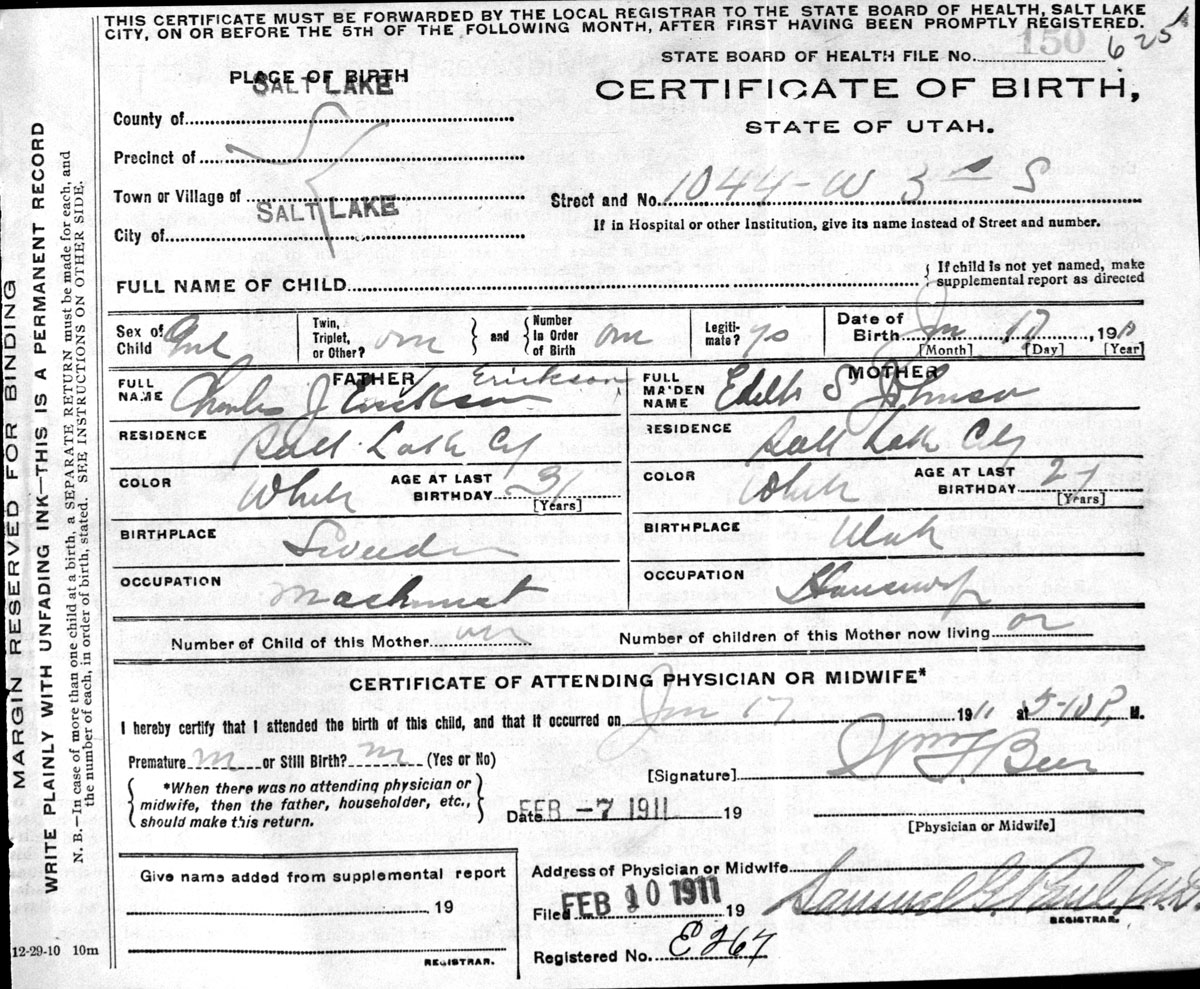 THIS CERTIFICATE MUST BE FORWARDED BY THE LOCAL REGISTRAR TO THE STATE BOARD OF HEALTH, SALT LAKE
CITY, ON OR BEFORE THE 5TH OF THE FOLLOWING MONTH, AFTER FIRST HAVING BEEN PROMPTLY REGISTERED.
150
STATE BOARD OF HEALTH FILE No. 625
PLACE OF BIRTH
SALT LAKE
CERTIFICATE OF BIRTH,
STATE OF UTAH.
County of
Precinct of
Town or Village of
SALT LAKE
City of
Street and No. 1044-W 3 S
If in Hospital or other Institution, give its name instead of Street and number.
FULL NAME OF CHILD
If child is not yet named, make
supplemental report as directed
Sex of Child Girl
Twin, Triplet, or Other? one and Number In Order of Birth one
Legiti-mate? yes
Date of Birth Jan 17, 191
[Month] [Day] [Year]
FATHER
FULL NAME Charles J Erickson Erickson
MOTHER
FULL MAIDEN NAME Edith S Johnson
RESIDENCE Salt Lake Cy
RESIDENCE Salt Lake City
COLOR White AGE AT LAST BIRTHDAY 31 [Years]
COLOR White AGE AT LAST BIRTHDAY [Years]
BIRTHPLACE Sweeden
BIRTHPLACE Utah
OCCUPATION Machinest
OCCUPATION Housewife
Number of Child of this Mother one
Number of children of this Mother now living on
CERTIFICATE OF ATTENDING PHYSICIAN OR MIDWIFE*
I hereby certify that I attended the birth of this child, and that it occurred on Jan 17 1911 at 5-10 P, M.
Premature or Still Birth? (Yes or No)
[Signature] Wm F Beer
*When there was no attending physician or
midwife, then the father, householder, etc.,
should make this return.
Date FEB -7 1911 19
[Physician or Midwife]
Give name added from supplemental report
19
REGISTRAR.
Address of Physician or Midwife
Filed FEB 10 1911 19
Samuel G. Paul, M.D.
REGISTRAR.
Registered No. E267
12-29-10 10m
MARGIN RESERVED FOR BINDING
WRITE PLAINLY WITH UNFADING INK—THIS IS A PERMANENT RECORD
N. B.—In case of more than one child at a birth, a SEPARATE RETURN must be made for each, and
the number of each, in order of birth, stated. SEE INSTRUCTIONS ON OTHER SIDE.